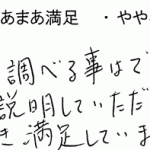 あまあ満足 ・やや
調べる事はで
説明していただ
き満足していま